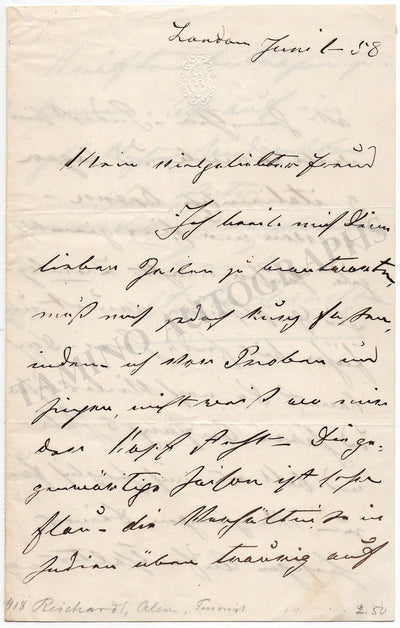 London Juni 1 58
Mein vielgeliebter Freund
Ich beeile mich Deine
lieben Zeilen zu beantworten,
muß mich jedoch kurz fassen,
indem ich vor Proben und
singen, nicht weiß wo mir
der Kopf steht – Die ge-
genwärtige Saison ist sehr
flau – die Verhältnisse in
Indien üben traurig auf
TAMINO AUTOGRAPHS
418 Reichardt, Alex, Tenorist
2.50